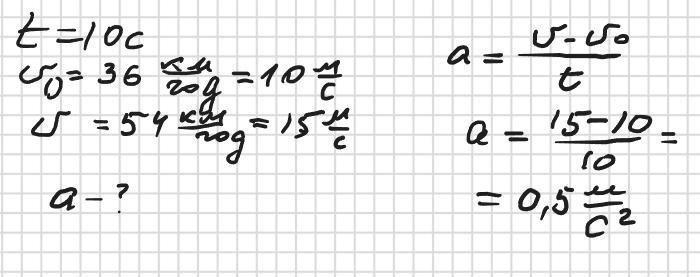 t = 10 c
v₀ = 36 км/год = 10 м/с
v = 54 км/год = 15 м/с
a - ?
a = (v - v₀)/t
a = (15 - 10)/10 =
= 0,5 м/с²